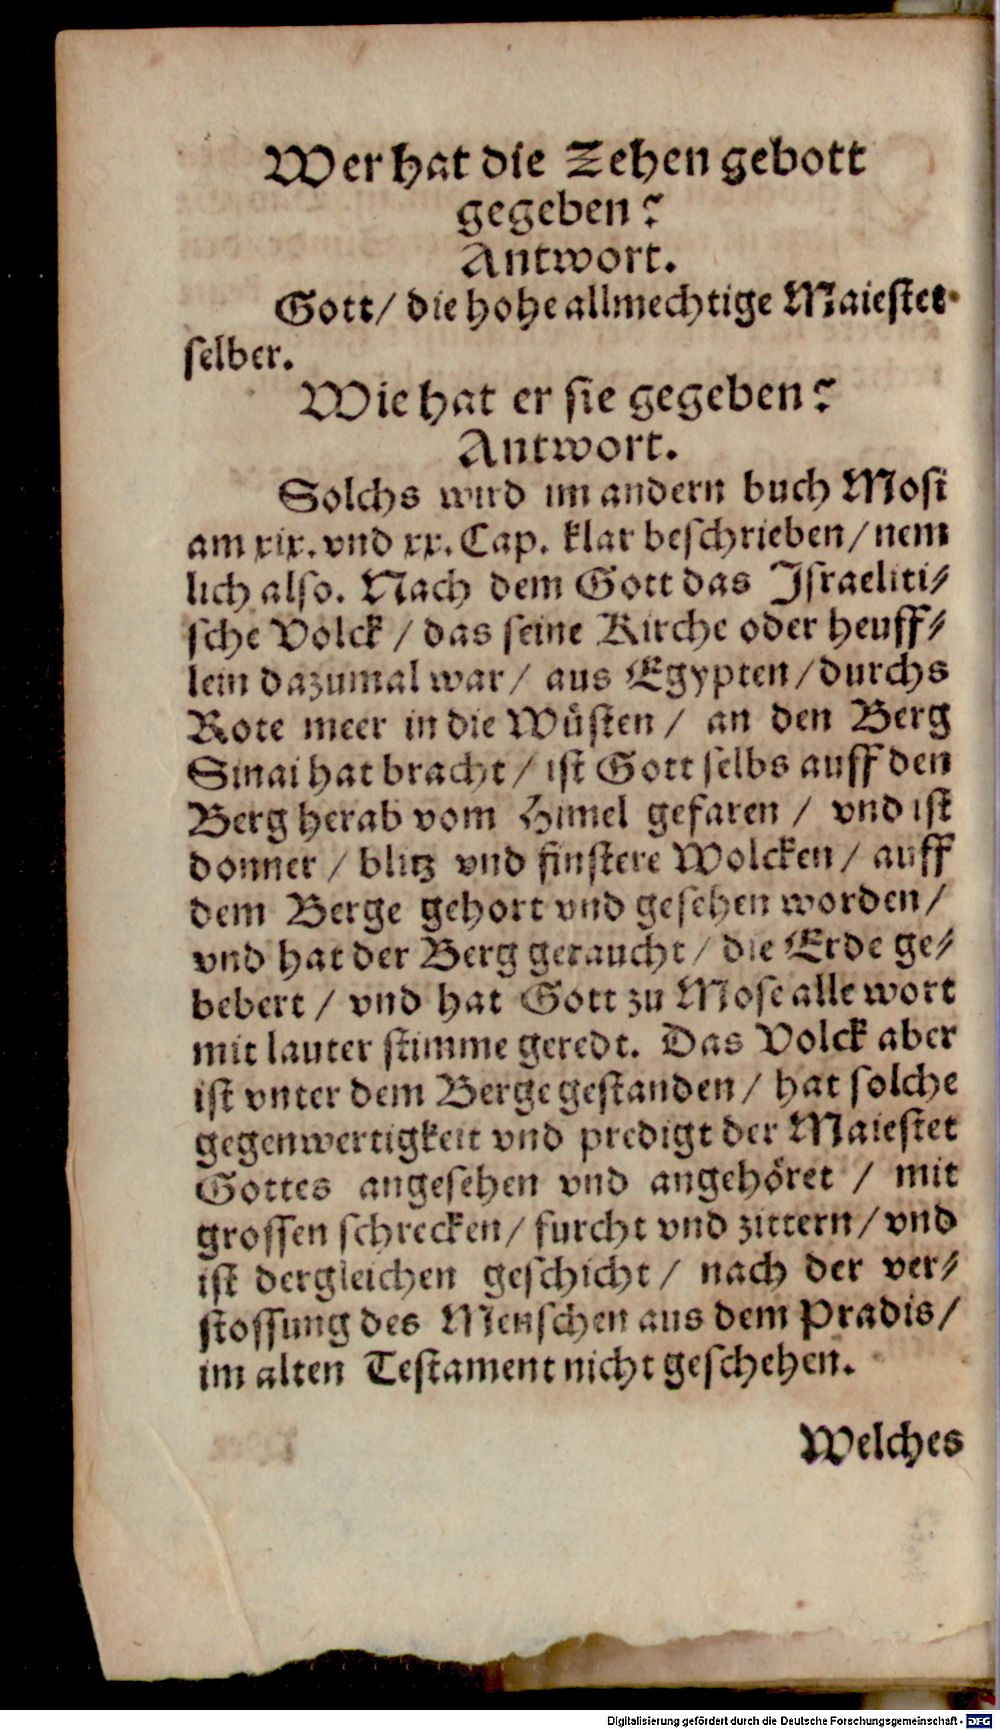 Wer hat die Zehen gebott
gegeben?
Antwort.
Gott/ die hohe allmechtige Maiestet
selber.
Wie hat er sie gegeben?
Antwort.
Solchs wird im andern buch Mosi
am xix. vnd xx. Cap. klar beschrieben/ nem
lich also. Nach dem Gott das Israeliti⸗
sche Volck / das seine Kirche oder heuff⸗
lein dazumal war/ aus Egypten/ durchs
Rote meer in die Wüsten / an den Berg
Sinai hat bracht/ ist Gott selbs auff den
Berg herab vom Himel gefaren / vnd ist
donner / blitz vnd finstere Wolcken/ auff
dem Berge gehort vnd gesehen worden/
vnd hat der Berg geraucht/ die Erde ge⸗
bebert / vnd hat Gott zu Mose alle wort
mit lauter stimme geredt. Das Volck aber
ist vnter dem Berge gestanden/ hat solche
gegenwertigkeit vnd predigt der Maiestet
Gottes angesehen vnd angehöret / mit
grossen schrecken/ furcht vnd zittern/ vnd
ist dergleichen geschicht/ nach der ver⸗
stossung des Menschen aus dem Pradis/
im alten Testament nicht geschehen.
Welches
Digitalisierung gefördert durch die Deutsche Forschungsgemeinschaft - DFG